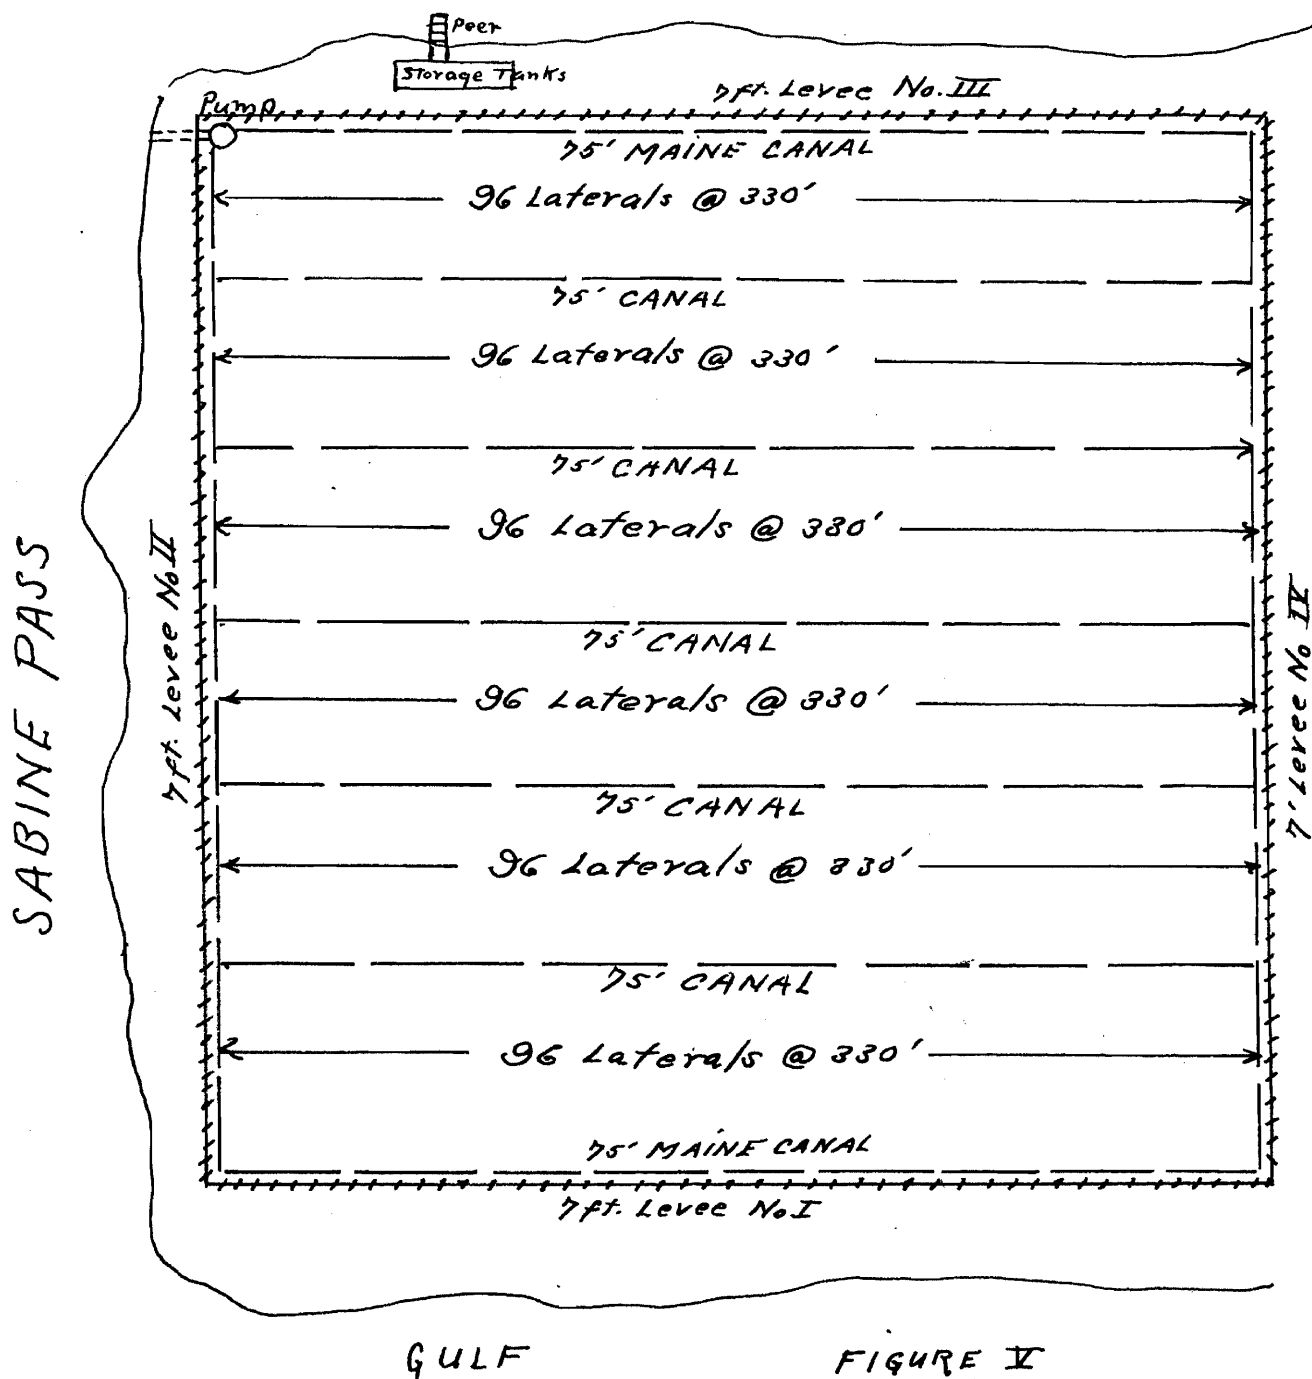 Peer
Storage Tanks
7ft. Levee No. III
Pump
75' MAINE CANAL
96 Laterals @ 330'
75' CANAL
96 Laterals @ 330'
75' CANAL
96 Laterals @ 330'
75' CANAL
96 Laterals @ 330'
75' CANAL
96 Laterals @ 330'
75' CANAL
96 Laterals @ 330'
75' MAINE CANAL
7ft. Levee No I
SABINE PASS
7ft. Levee No II
7' Levee No IV
GULF
FIGURE V